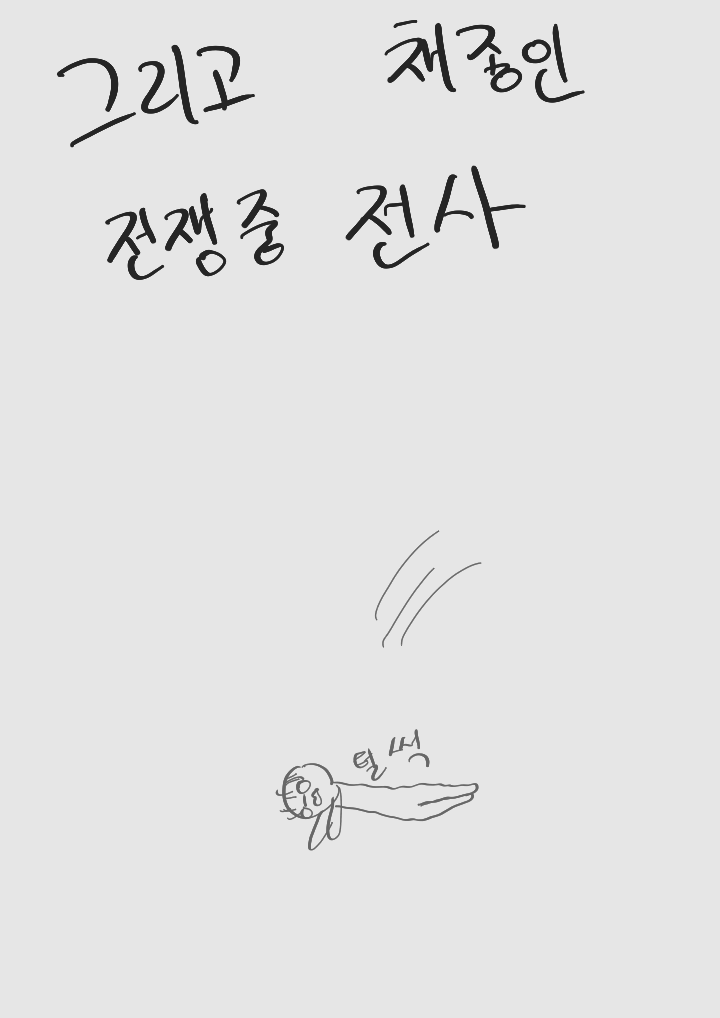 그리고 채종인
전쟁중 전사
털썩